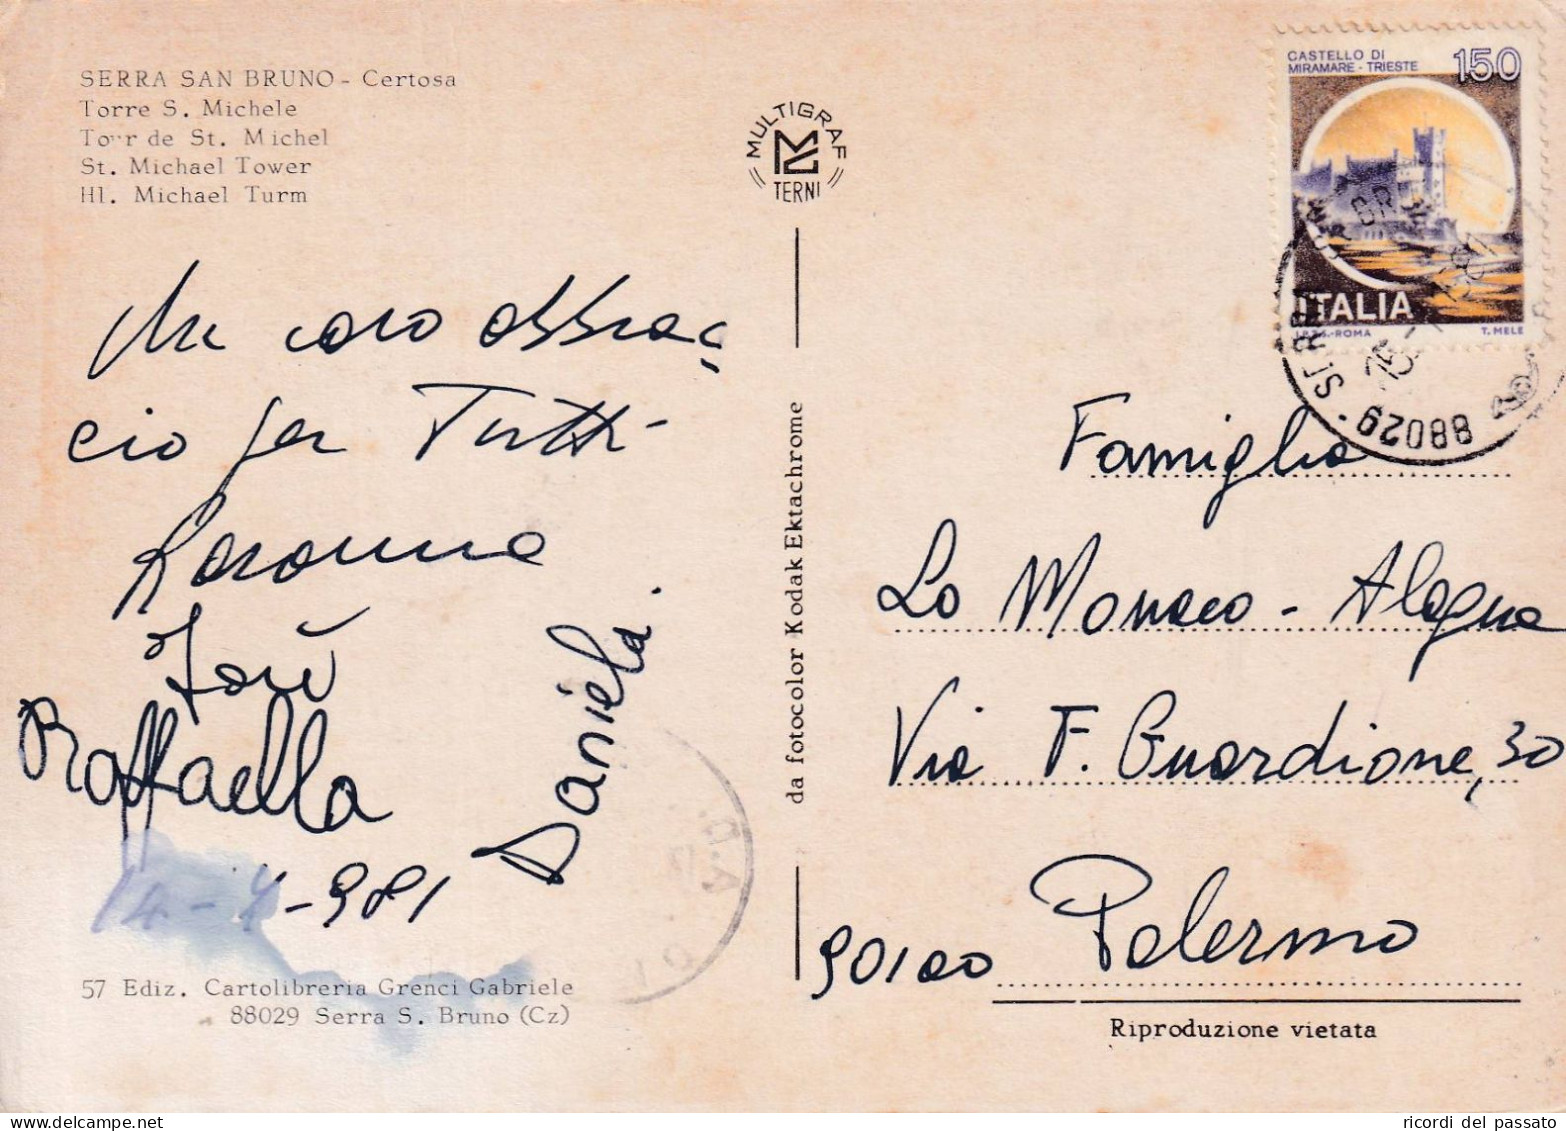 SERRA SAN BRUNO - Certosa
Torre S. Michele
Tour de St. Michel
St. Michael Tower
Hl. Michael Turm
MULTIGRAF
TERNI
CASTELLO DI
MIRAMARE - TRIESTE
150
ITALIA
I.P.Z.S.-ROMA
T. MELE
88029 - SERRA
Un caro abbrac
cio per Tutti -
Rosanna
Raffaella
Daniela.
981
da fotocolor Kodak Ektachrome
Famiglia
Lo Monaco - Alagna
Via F. Guardione, 30
90100 Palermo
57 Ediz. Cartolibreria Grenci Gabriele
88029 Serra S. Bruno (Cz)
Riproduzione vietata
ricordi del passato